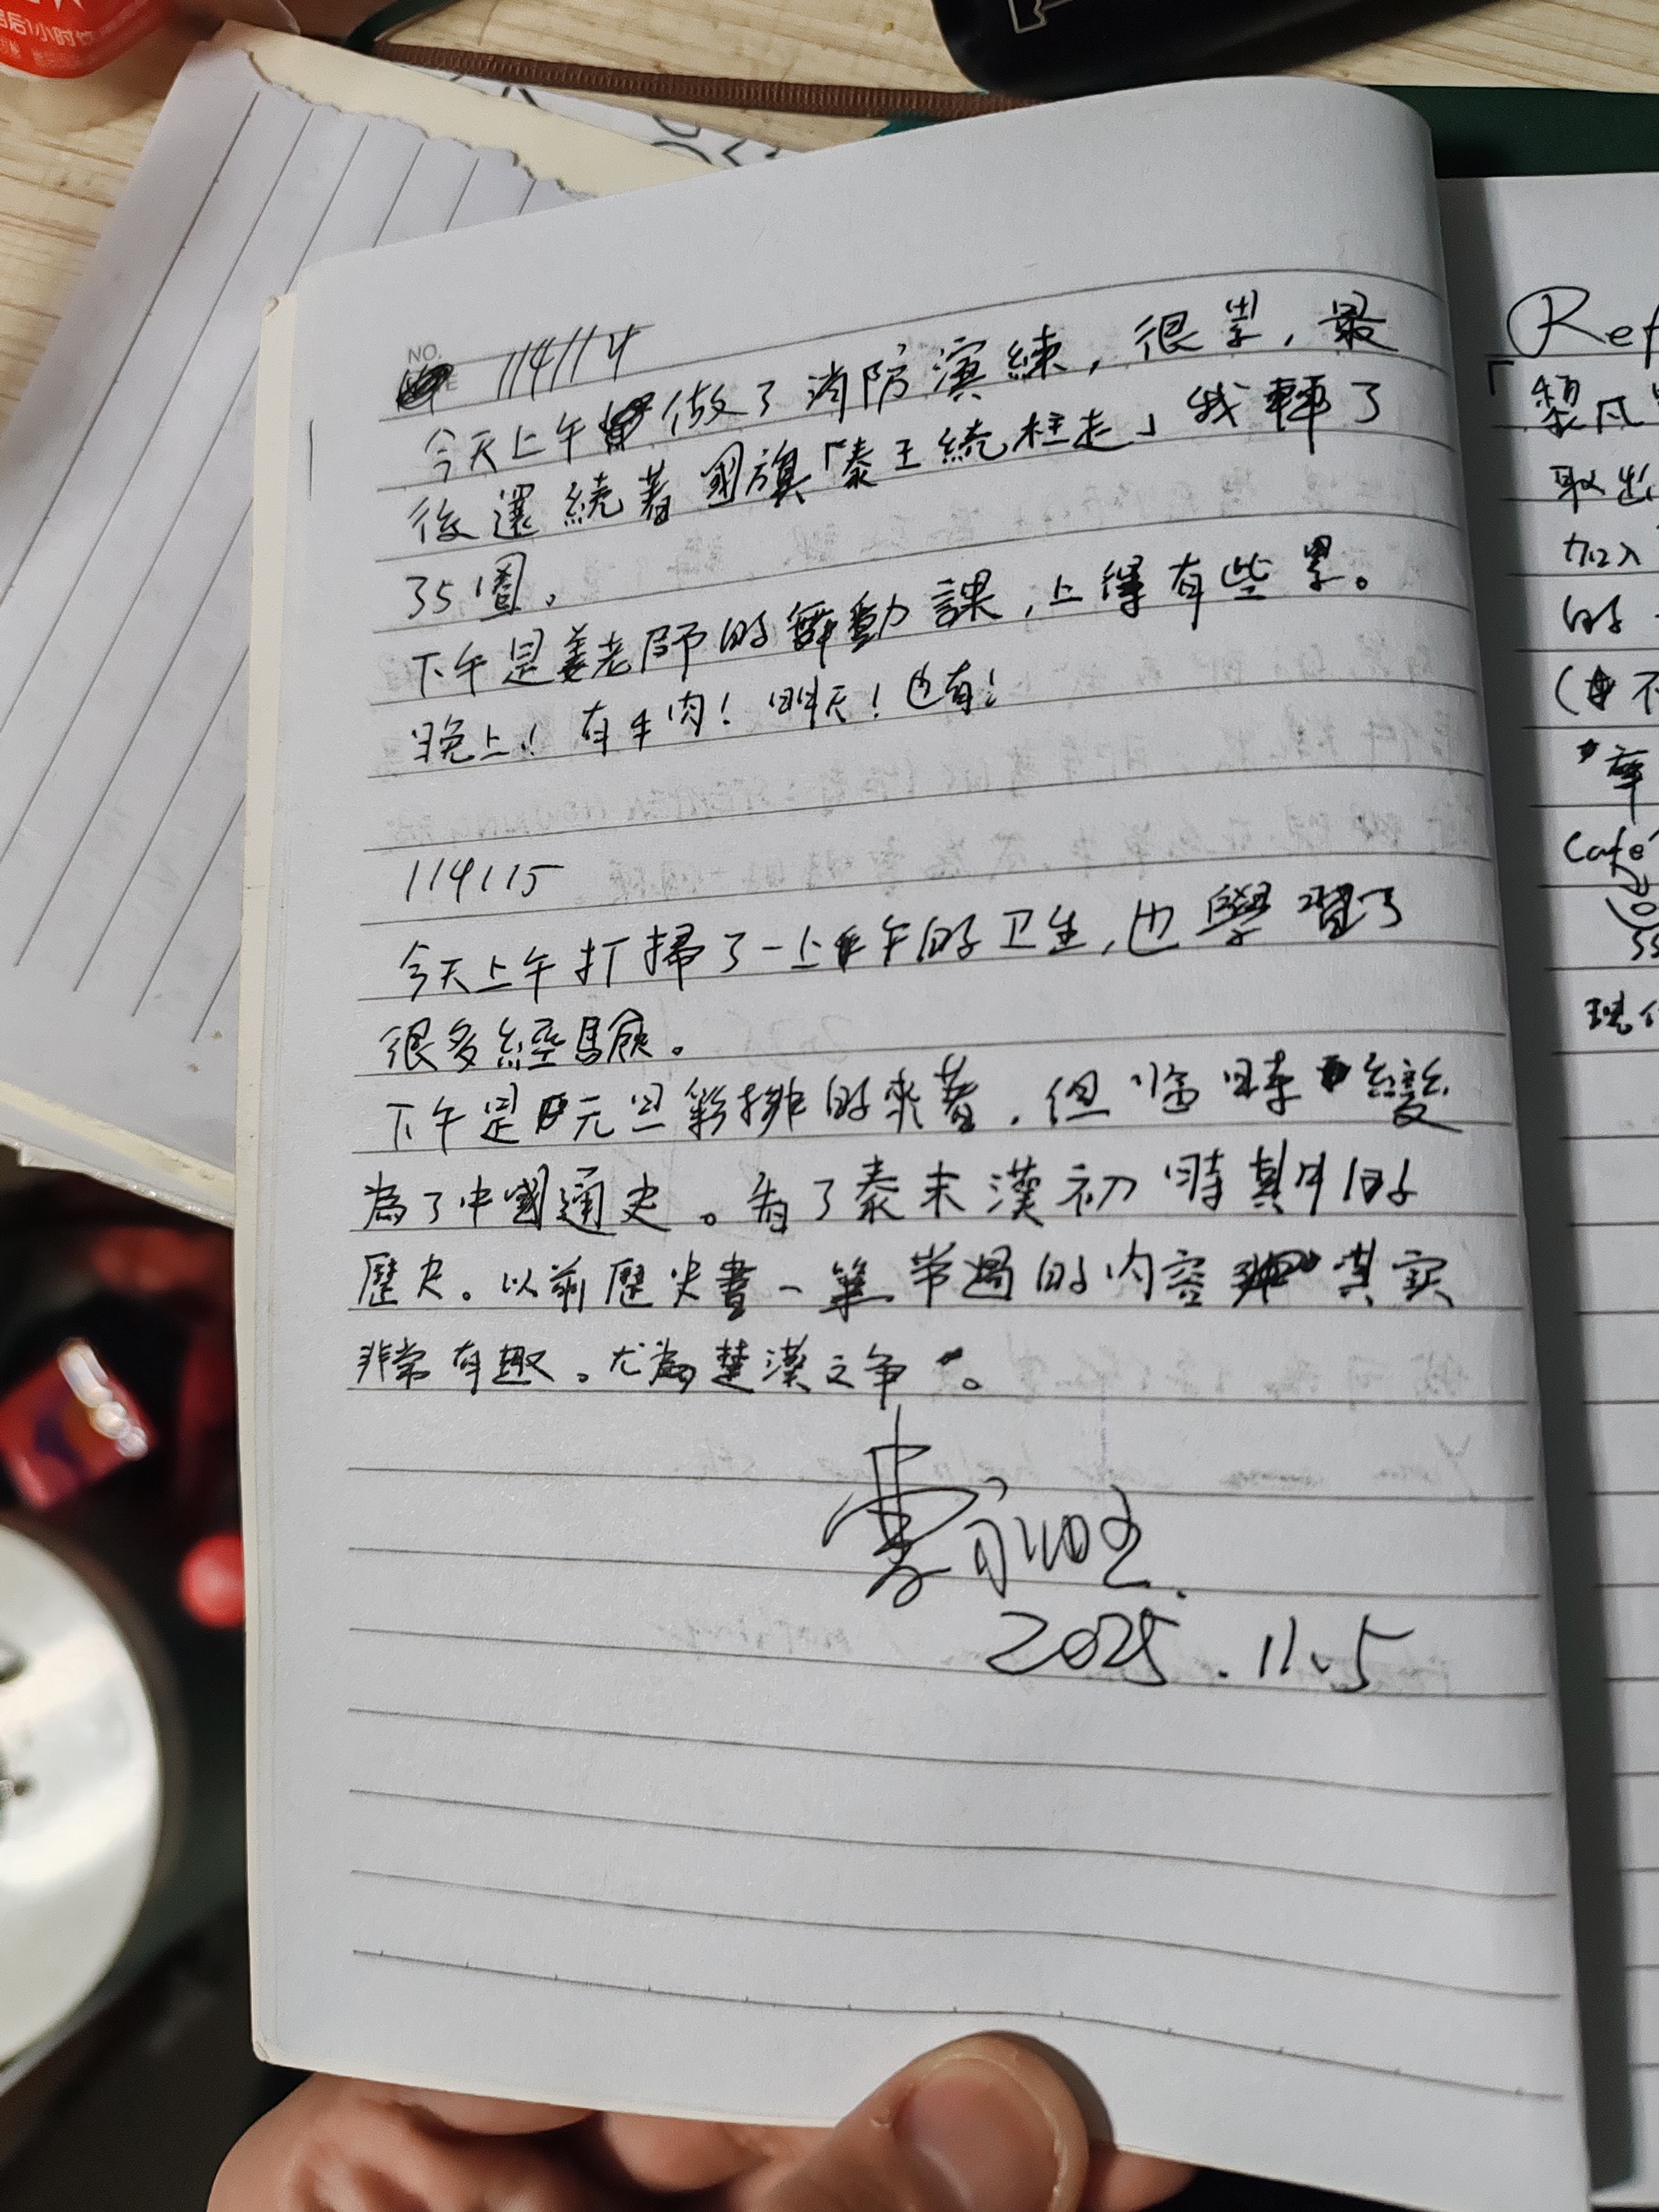 NO.
114114
今天上午做了消防演練，很累，最
後還繞著國旗「秦王繞柱走」我轉了
35圈。
下午是姜老師的舞動課，上得有些累。
晚上！有牛肉！昨天！也有！
114115
今天上午打掃了一上午的卫生，也學習了
很多經驗。
下午是元旦彩排的來著，但臨時變
為了中國通史。看了秦末漢初時其中的
歷史。以前歷史書一筆带過的内容其實
非常有趣。尤為楚漢之争。
2025.11.5
Ref
「
取出
加入
的
(不
Café
現代
后1小时饮